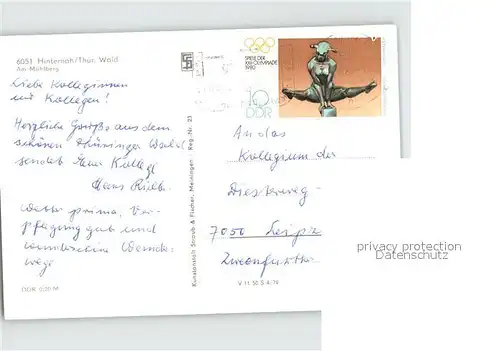 6051 Hinternah/Thür. Wald
Am Mühlberg
Liebe Kolleginnen
und Kollegen!
Herzliche Grüße aus dem
schönen Thüringer Wald
sendet Euer Kollege
Hans
Wetter prima, Ver-
pflegung gut und
wunderschöne Wander-
wege
DDR 0,20 M
Kunstanstalt Straub & Fischer, Meiningen · Reg.-Nr. 23
V 11 50 S 4/79
SPIELE DER
XXII. OLYMPIADE
1980
10
DDR
An das
Kollegium der
Diesterweg-
7050 Leipz
privacy protection
Datenschutz